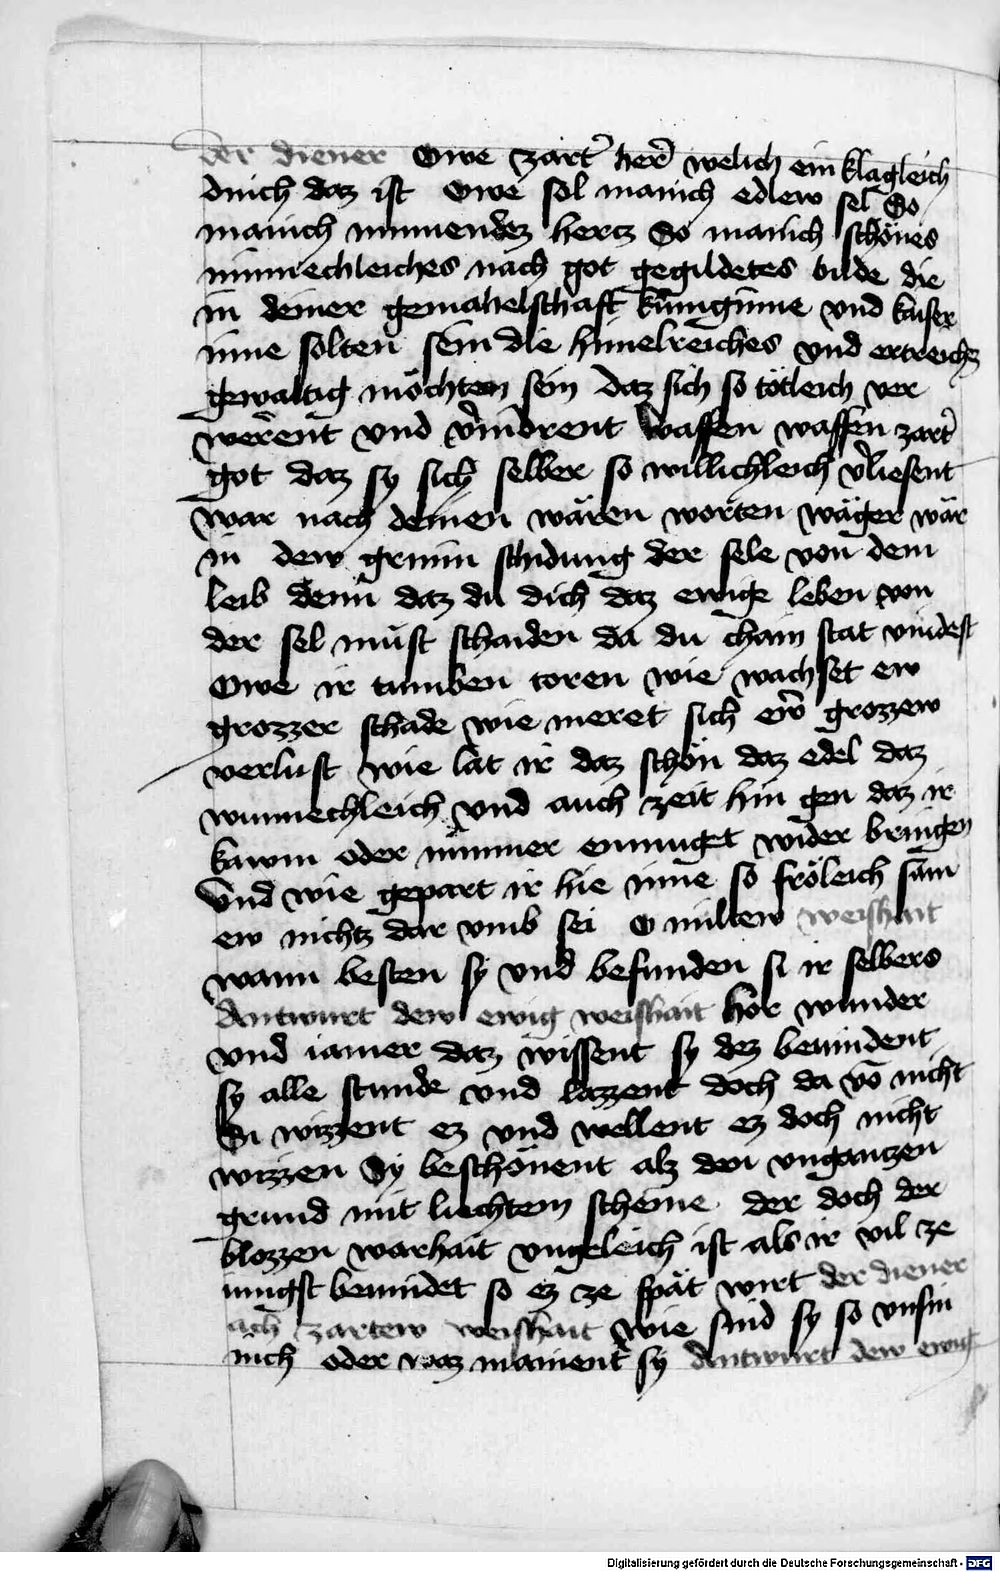 der diener Owe zarter̉ herr̉ welich ein klagleich
dinch daz ist Owe sol manich edlew sel So
manich minnendez hercz So manich schönes
minnechleiches nach got gegildetes bilde die
in deiner gemahelschaft küniginne vnd kaiser
inne solten sein die himelreiches vnd ertreichz
gewaltig möchten sein daz sich so tötleich ver
werent vnd v̉mindrent Waffen waffen zart̉
got daz sy sich selber so willichleich v̉liesent
war nach deinen wären worten wäger wär
in dew grimm schidung der sele von dem
leib denn daz du dich daz ewige leben von
der sel müst schaiden da du chain stat vindest
Owe ir tumben toren wie wachset ew
grozzer schade wie meret sich ew̉ grozzew
verlust wie lat ir daz schön daz edel daz
wunnechleich vnd auch zeit hin gen daz ir
kawm oder nimmer enmuget wider bringen
Vnd wie gepart ir hie inne so fröleich sam
ew nichtz dar vmb sei O miltew weishait
wann westen sy vnd befunden si ir selbers
Antwurt dew ewig weishait hör wunder
vnd iamer daz wissent sy dez bevindent
sy alle stunde vnd lazzent doch da vō nicht
Si wizzent ez vnd wellent ez doch nicht
wizzen Sy beschönent alz den vnganczen
grund mit liechtem scheine der doch der
blozzen warhait vngeleich ist als ir vil ze
iungst bevindet so ez ze spät wirt der diener
ach zartew weishait wie sind sy so vnsin
nich oder waz mainent sy Antwurt dew ewig
Digitalisierung gefördert durch die Deutsche Forschungsgemeinschaft - DFG